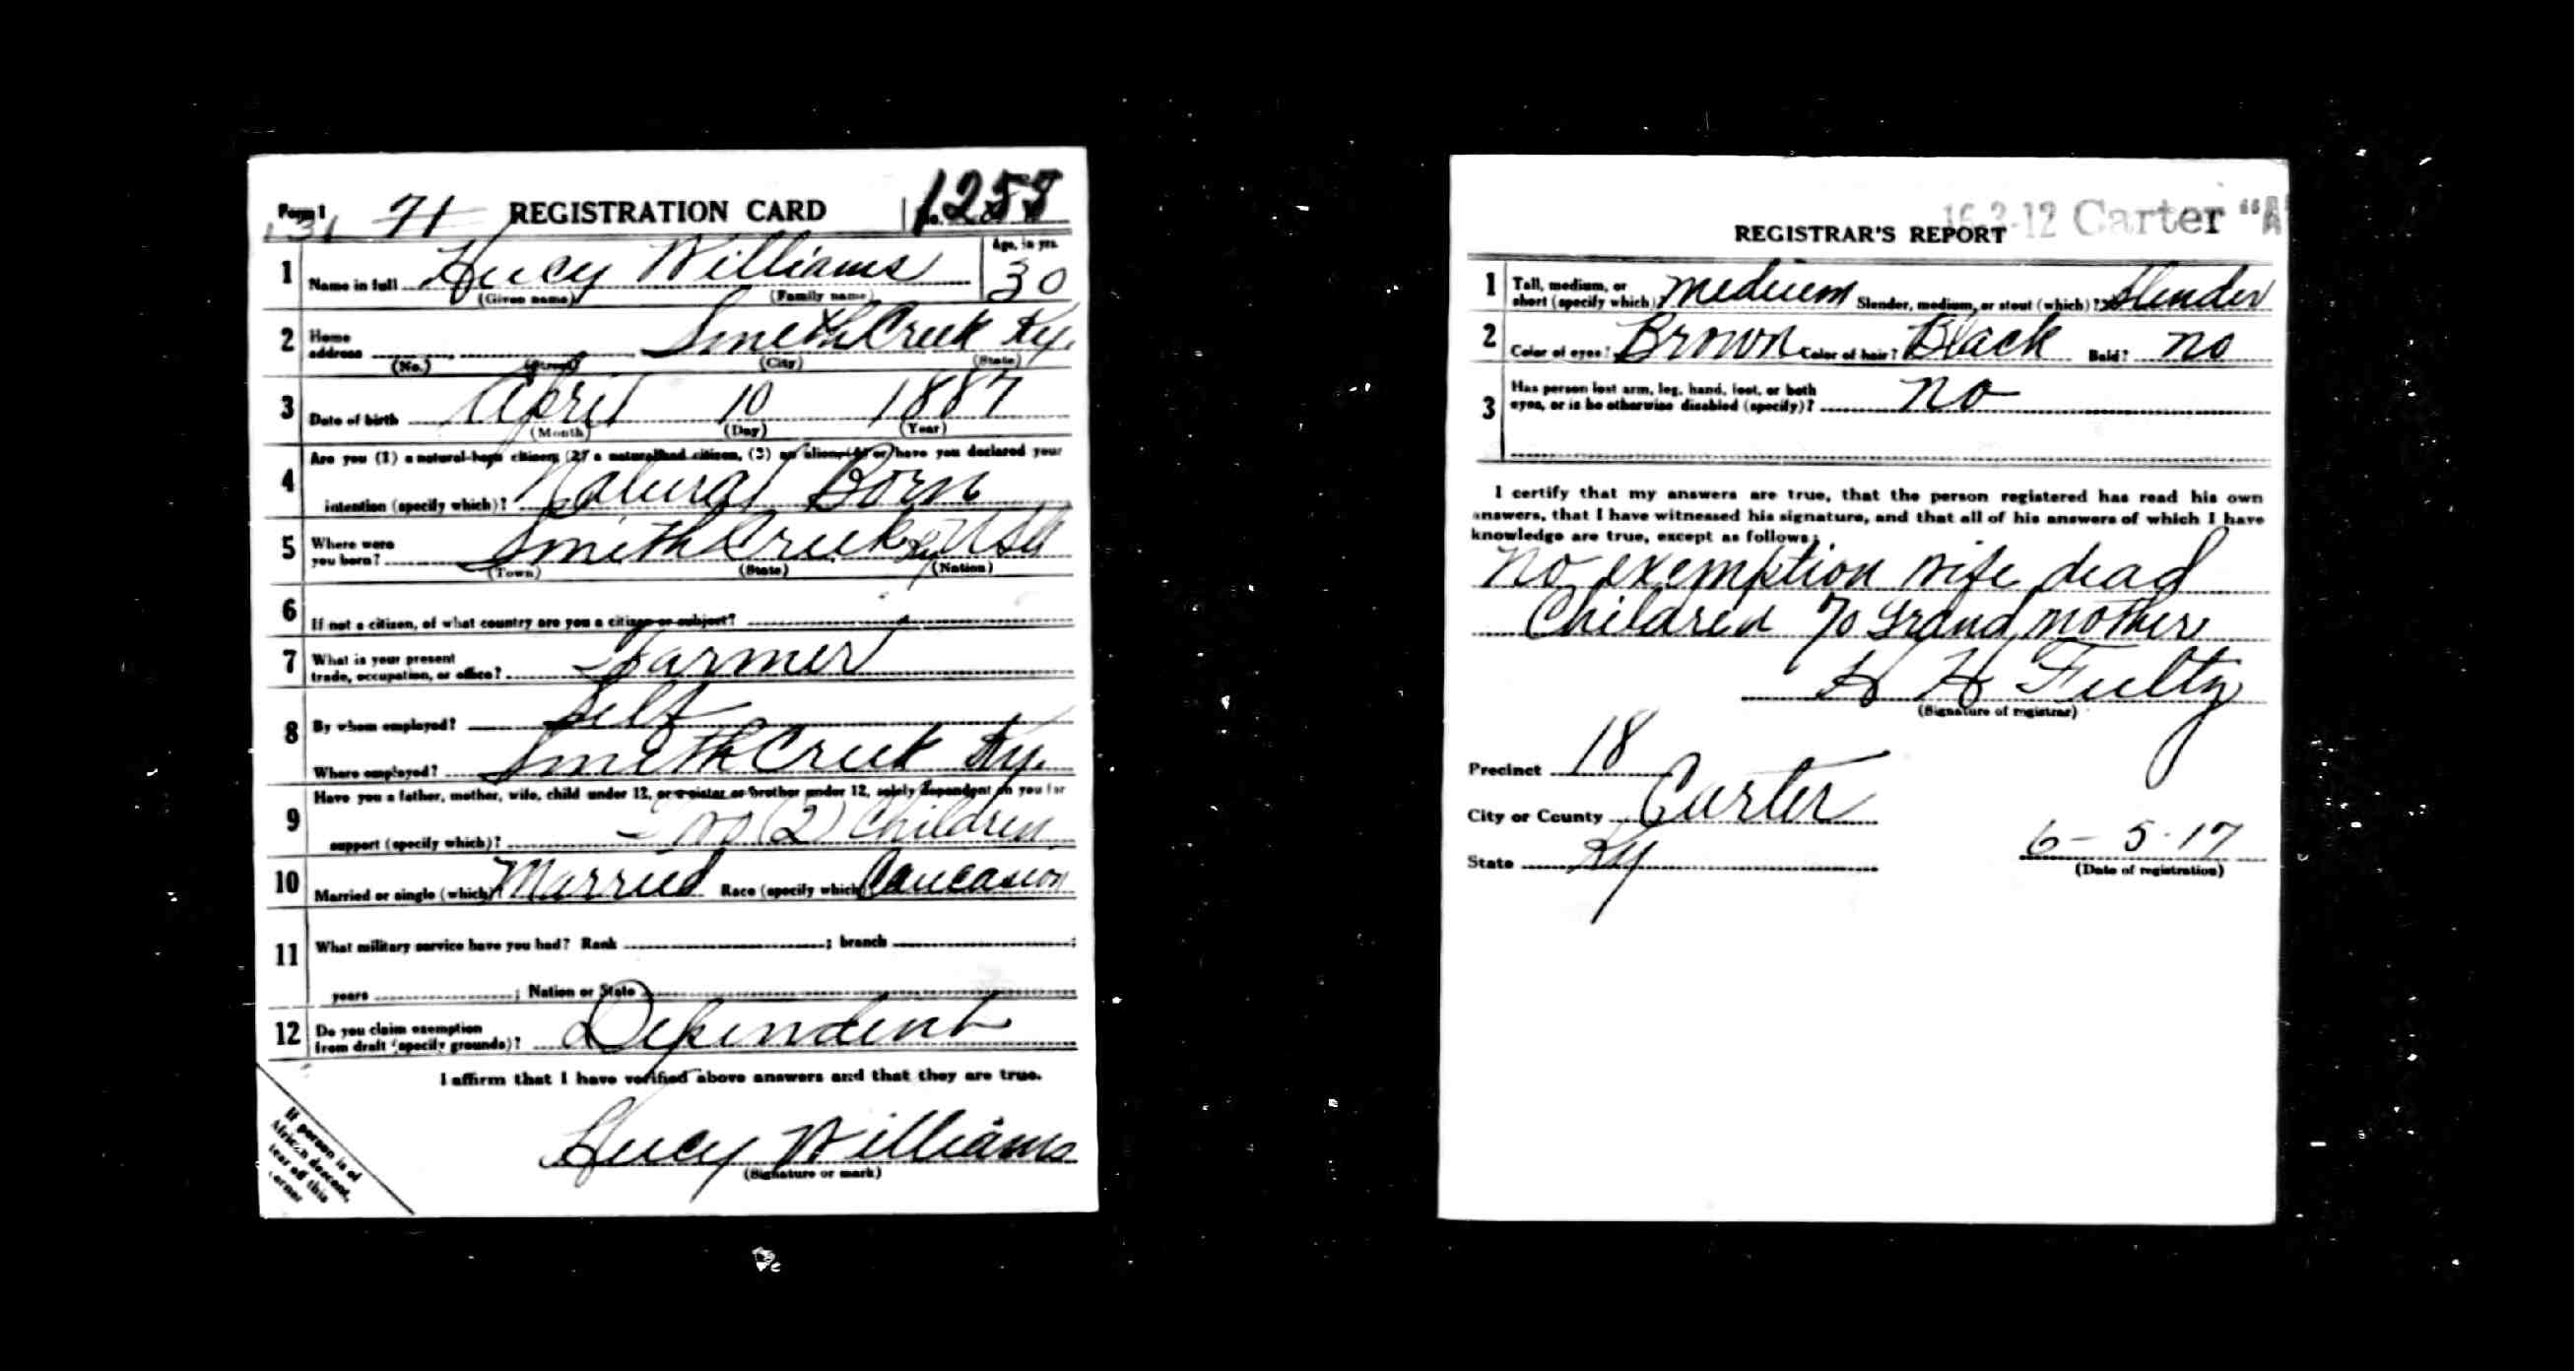 Form 1 REGISTRATION CARD No. 1258
131 71
1 Name in full Hucy Williams Age, in yrs. 30
(Given name) (Family name)
2 Home address Smith Creek Ky.
(No.) (Street) (City) (State)
3 Date of birth April 10 1887
(Month) (Day) (Year)
4 Are you (1) a natural-born citizen, (2) a naturalized citizen, (3) an alien, (4) or have you declared your
intention (specify which)? Natural Born
5 Where were you born? Smith Creek Ky USA
(Town) (State) (Nation)
6 If not a citizen, of what country are you a citizen or subject?
7 What is your present
trade, occupation, or office? Farmer
8 By whom employed? Self
Where employed? Smith Creek Ky.
9 Have you a father, mother, wife, child under 12, or a sister or brother under 12, solely dependent on you for
support (specify which)? Two (2) Children
10 Married or single (which)? Married Race (specify which)? Caucasion
11 What military service have you had? Rank ; branch ;
years ; Nation or State
12 Do you claim exemption
from draft (specify grounds)? Dependent
I affirm that I have verified above answers and that they are true.
Hucy Williams
(Signature or mark)
If person is of
African descent,
tear off this
corner
16-2-12 Carter "A"
REGISTRAR'S REPORT
1 Tall, medium, or
short (specify which)? medium Slender, medium, or stout (which)? Slender
2 Color of eyes? Brown Color of hair? Black Bald? no
3 Has person lost arm, leg, hand, foot, or both
eyes, or is he otherwise disabled (specify)? no
I certify that my answers are true, that the person registered has read his own
answers, that I have witnessed his signature, and that all of his answers of which I have
knowledge are true, except as follows:
No exemption wife dead
Children To Grand mothers
H H Fultz
(Signature of registrar)
Precinct 18
City or County Carter
State Ky
6-5-17
(Date of registration)